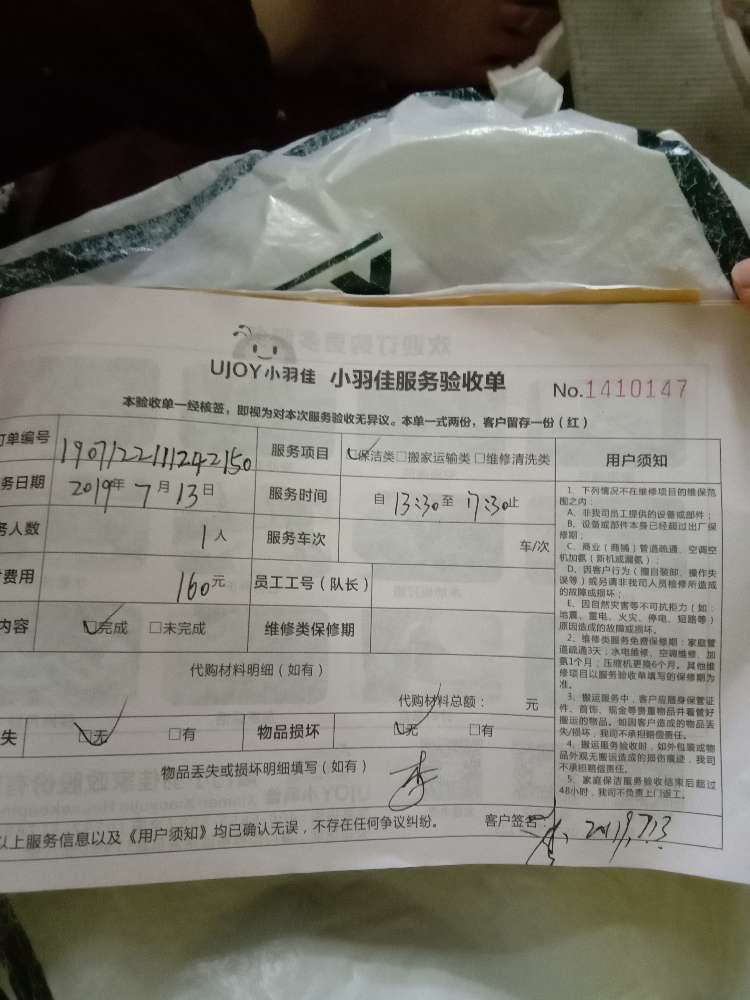 UJOY小羽佳 小羽佳服务验收单 No.1410147
本验收单一经核签，即视为对本次服务验收无异议。本单一式两份，客户留存一份（红）
订单编号 1907122111242150 服务项目 保洁类 □搬家运输类 □维修清洗类
务日期 2019年7月13日 服务时间 自 13:30 至 17:30 止
务人数 1人 服务车次 车/次
费用 160元 员工工号（队长）
内容 完成 □未完成 维修类保修期
代购材料明细（如有）
代购材料总额： 元
失 无 □有 物品损坏 无 □有
物品丢失或损坏明细填写（如有） 李
以上服务信息以及《用户须知》均已确认无误，不存在任何争议纠纷。 客户签名： 2019.7.13
用户须知
1、下列情况不在维修项目的维保范
围之内：
A、非我司员工提供的设备或部件；
B、设备或部件本身已经超过出厂保
修期；
C、商业（商铺）管道疏通、空调空
机加氨（新机或漏氨）；
D、因客户行为（擅自装卸、操作失
误等）或另请非我司人员检修所造成
的故障或损坏；
E、因自然灾害等不可抗拒力（如：
地震、雷电、火灾、停电、短路等）
原因造成的故障或损坏。
2、维修类服务免费保修期：家庭管
道疏通3天；水电维修、空调维修、加
氨1个月；压缩机更换6个月。其他维
修项目以服务验收单填写的保修期为
准。
3、搬运服务中，客户应随身保管证
件、首饰、现金等贵重物品并看管好
搬运的物品。如因客户造成的物品丢
失/损坏，我司不承担赔偿责任。
4、搬运服务验收时，如外包装或物
品外观无搬运造成的损伤痕迹，我司
不承担赔偿责任。
5、家庭保洁服务验收结束后超过
48小时，我司不负责上门返工。